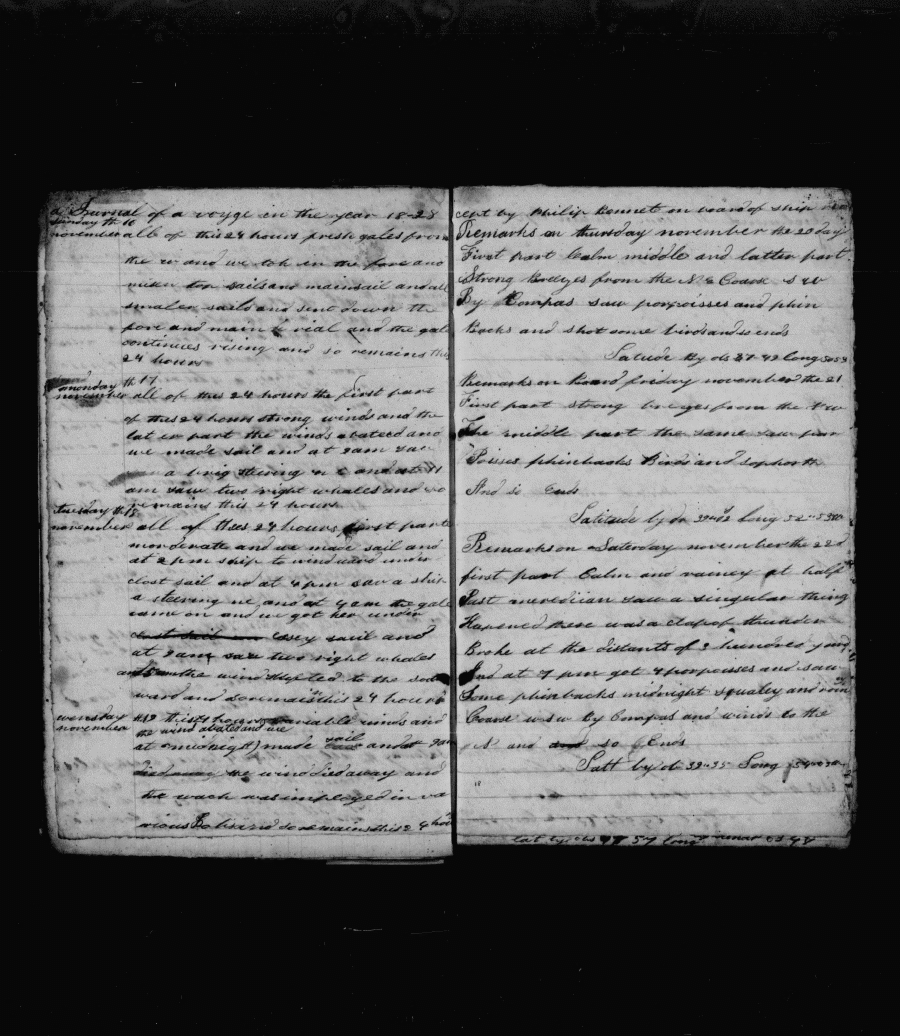 a Journal of a voyge in the year 18-28
sunday th 16
november all of this 24 hours fresh gales from
the w and we tok in the fore and
mizen top sails and mainsail and all
smaler sails and sent down th
fore and main rial and the gal
continues rising and so remains this
24 hours
monday th 17
november all of this 24 hours the first part
of this 24 hours strong winds and the
later part the winds abated and
we made sail and at 8 am saw
a brig stering and at 11
am saw two right whales and so
remains this 24 hours
tuesday th 18
november all of thes 24 hours first part
morderate and we made sail and
at 2 pm ship to windward under
clost sail and at 4 pm saw a ship
a steering ne and at 4 am the gale
came on and we got her under
essey sail and
at 8 am saw two right whales
the wind shifted to the
ward and so remains this 24 hours
wensday th 19 this 24 hours variable winds and
november the wind abates and we
at midnight made sail and at
died away the wind died away and
the wach was imployed in va
rious Jobs and so remains this 24 hours
cept by Philip Bennet on board of ship
Remarks on thursday november the 20 day
First part Calm middle and latter part
Strong Breezes from the N E Coarse S W
By Compas saw porpoisses and phin
Backs and shot some birds and so ends
Latitude By ob 37-42 Long
Remarks on Board friday november the 21
First part strong brezes from the
The middle part the same saw por
Poisses phinbacks Birds and so forth
And so Ends
Latitude by ob Long
Remarks on Saterday november the 22d
first part Calm and rainey at half
Past merediian saw a singular thing
Hapened there was a clap of thunder
Broke at the distants of 2 hundred yards
And at 7 pm got 4 porpoisses and saw
Some phinbacks midnight squaley and rain
Coarse w s w by Compas and winds to the
and so Ends
Latt by ob 39-35 Long
lat by obs 57 long